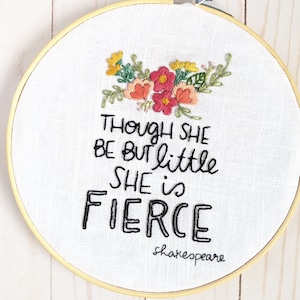 THOUGH SHE
BE BUT little
SHE is
FIERCE
shakespeare